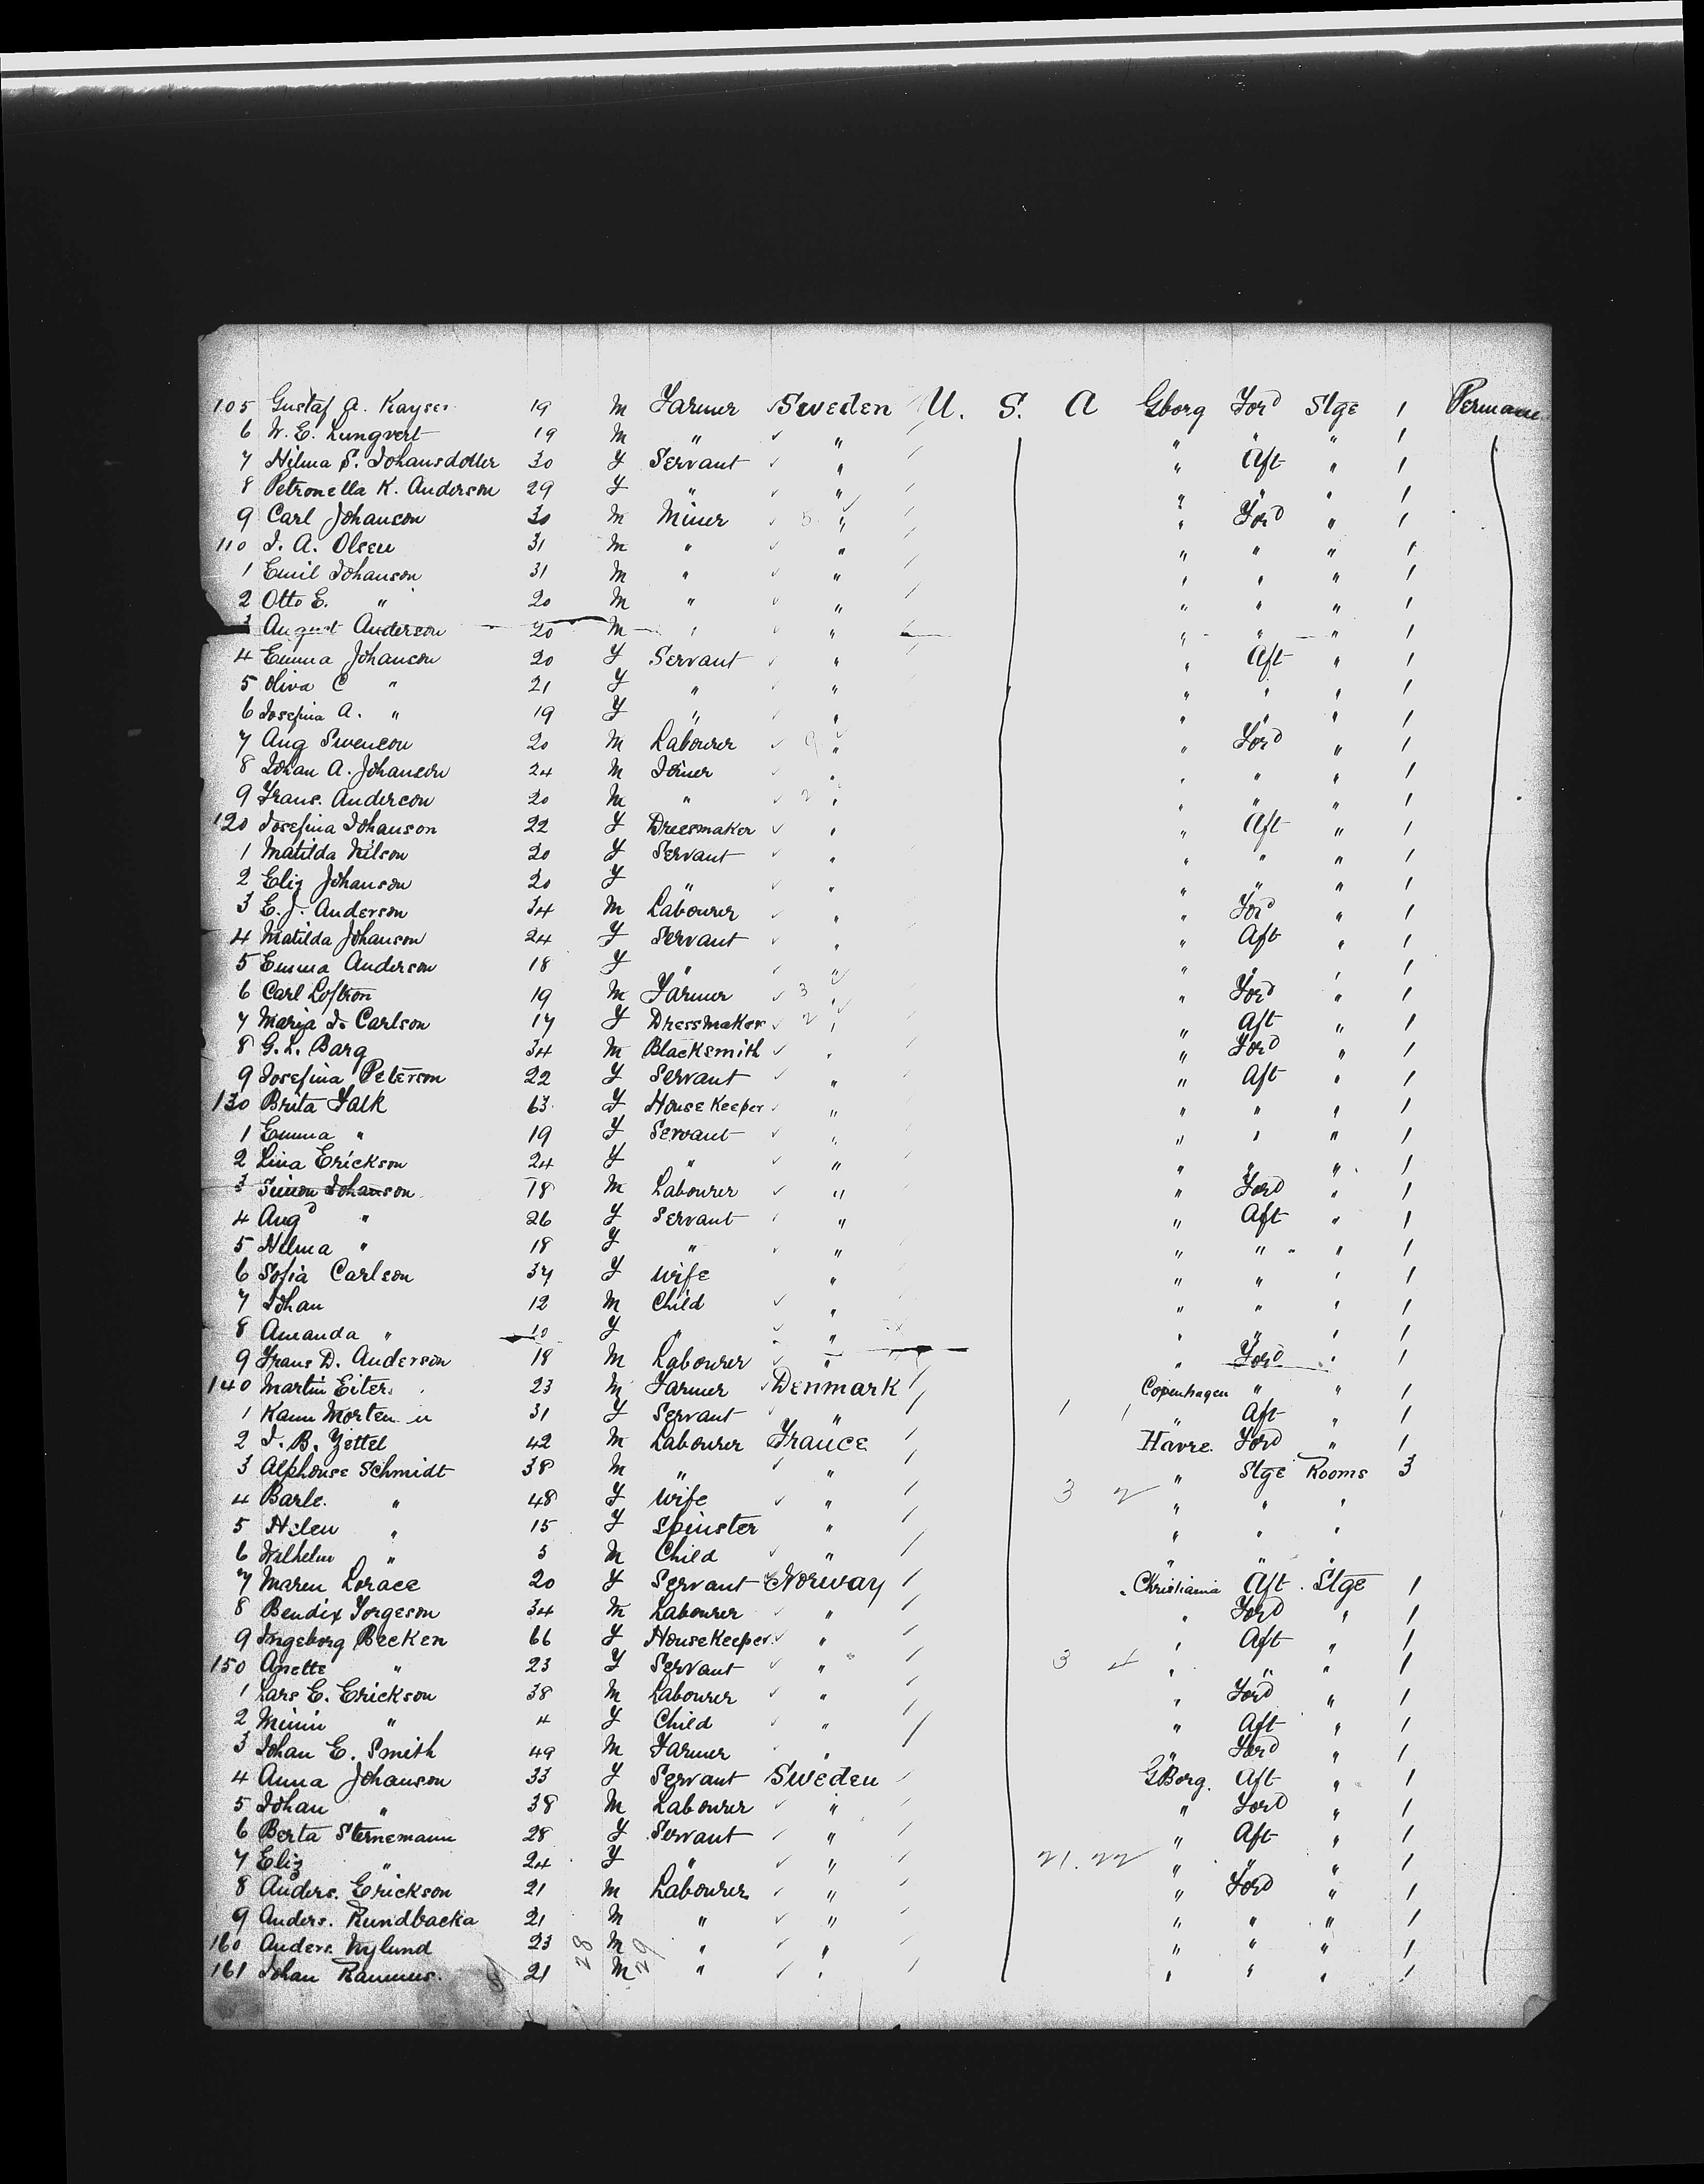 105 Gustaf A. Kayser 19 M Farmer Sweden U. S. A Gborg For'd Stge 1 Permane
6 W. E. Lungvert 19 M " " " " " 1
7 Hilma S. Johansdotter 30 F Servant " " Aft " 1
8 Petronella K. Anderson 29 F " " " " " 1
9 Carl Johanson 30 M Miner " " For'd " 1
110 J. A. Olsen 31 M " " " " " 1
1 Emil Johanson 31 M " " " " " 1
2 Otto E. " 20 M " " " " " 1
3 August Anderson 20 M " " " " " 1
4 Emma Johanson 20 F Servant " " Aft " 1
5 Oliva C " 21 F " " " " " 1
6 Josefina A. " 19 F " " " " " 1
7 Aug Swenson 20 M Labourer 9 " " For'd " 1
8 Johan A. Johanson 24 M Joiner " " " " 1
9 Frans. Anderson 20 M " 2 " " " " 1
120 Josefina Johanson 22 F Dressmaker " " Aft " 1
1 Matilda Nilson 20 F Servant " " " " 1
2 Eliz Johanson 20 F " " " " " 1
3 E. J. Anderson 34 M Labourer " " For'd " 1
4 Matilda Johanson 24 F Servant " " Aft " 1
5 Emma Anderson 18 F " " " " " 1
6 Carl Loftron 19 M Farmer 3 " " For'd " 1
7 Marija J. Carlson 17 F Dressmaker 2 " " Aft " 1
8 G. L. Barg 34 M Blacksmith " " For'd " 1
9 Josefina Peterson 22 F Servant " " Aft " 1
130 Brita Falk 63 F House Keeper " " " " 1
1 Emma " 19 F Servant " " " " 1
2 Lina Erickson 24 F " " " " " 1
3 Simon Johanson 18 M Labourer " " For'd " 1
4 Aug " 26 F Servant " " Aft " 1
5 Hilma " 18 F " " " " " 1
6 Sofia Carlson 37 F Wife " " " " 1
7 Johan 12 M Child " " " " 1
8 Amanda " 10 F " " " " " 1
9 Frans D. Anderson 18 M Labourer " " For'd " 1
140 Martin Eiter 23 M Farmer Denmark Copenhagen " " 1
1 Karen Morten 31 F Servant " 1 1 " Aft " 1
2 J. B. Zettel 42 M Labourer France Havre. For'd " 1
3 Alphonse Schmidt 38 M " " " Stge Rooms 3
4 Barle. " 48 F Wife " 3 2 " " "
5 Helen " 15 F Spinster " " " "
6 Wilhelm " 5 M Child " " " "
7 Maren Lorace 20 F Servant Norway Christiania Aft Stge 1
8 Bendix Jorgeson 34 M Labourer " " For'd " 1
9 Ingeborg Becken 66 F HouseKeeper " " Aft " 1
150 Anette " 23 F Servant " 3 4 " " " 1
1 Lars E. Erickson 38 M Labourer " " For'd " 1
2 Minni " 4 F Child " " Aft " 1
3 Johan E. Smith 49 M Farmer " " For'd " 1
4 Anna Johanson 33 F Servant Sweden GBorg. Aft " 1
5 Johan " 38 M Labourer " " For'd " 1
6 Berta Sternemann 28 F Servant " " Aft " 1
7 Eliz " 24 F " " 21. 22 " " " 1
8 Anders. Erickson 21 M Labourer " " For'd " 1
9 Anders. Rundbacka 21 M " " " " " 1
160 Anders. Nylund 23 28 M 29 " " " " " 1
161 Johan Rannus. 21 M " " " " " 1